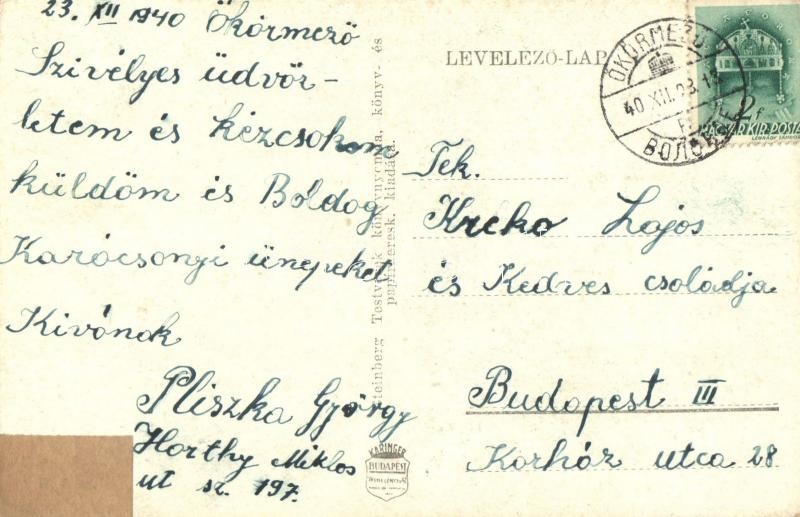 23. XII 1940 Ökörmező
Szívélyes üdvöz-
letem és kézcsokom
küldöm és Bóldog
Karácsonyi ünepeket
Kivánok
Pliszka György
Horthy Miklos
ut sz. 197.
Steinberg Testvérek könyvnyomda, könyv- és
papirkeresk. kiadása.
KARINGER
BUDAPEST
LEVELEZŐ-LAP
ÖKÖRMEZŐ
40 XII. 23. 18
MAGYAR KIR. POSTA
2f
Tek.
Krcko Lajos
és Kedves csoládja
Budapest III
Korház utca 28